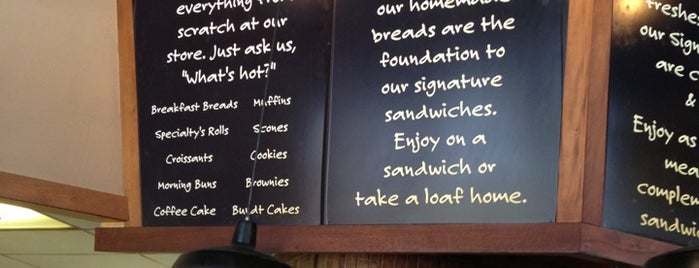 everything from
scratch at our
store. Just ask us,
"What's hot?"
Breakfast Breads Muffins
Specialty's Rolls Scones
Croissants Cookies
Morning Buns Brownies
Coffee Cake Bundt Cakes
our homemade
breads are the
foundation to
our signature
sandwiches.
Enjoy on a
sandwich or
take a loaf home.
our Sign
are c
&
Enjoy as
mea
complem
sandwic